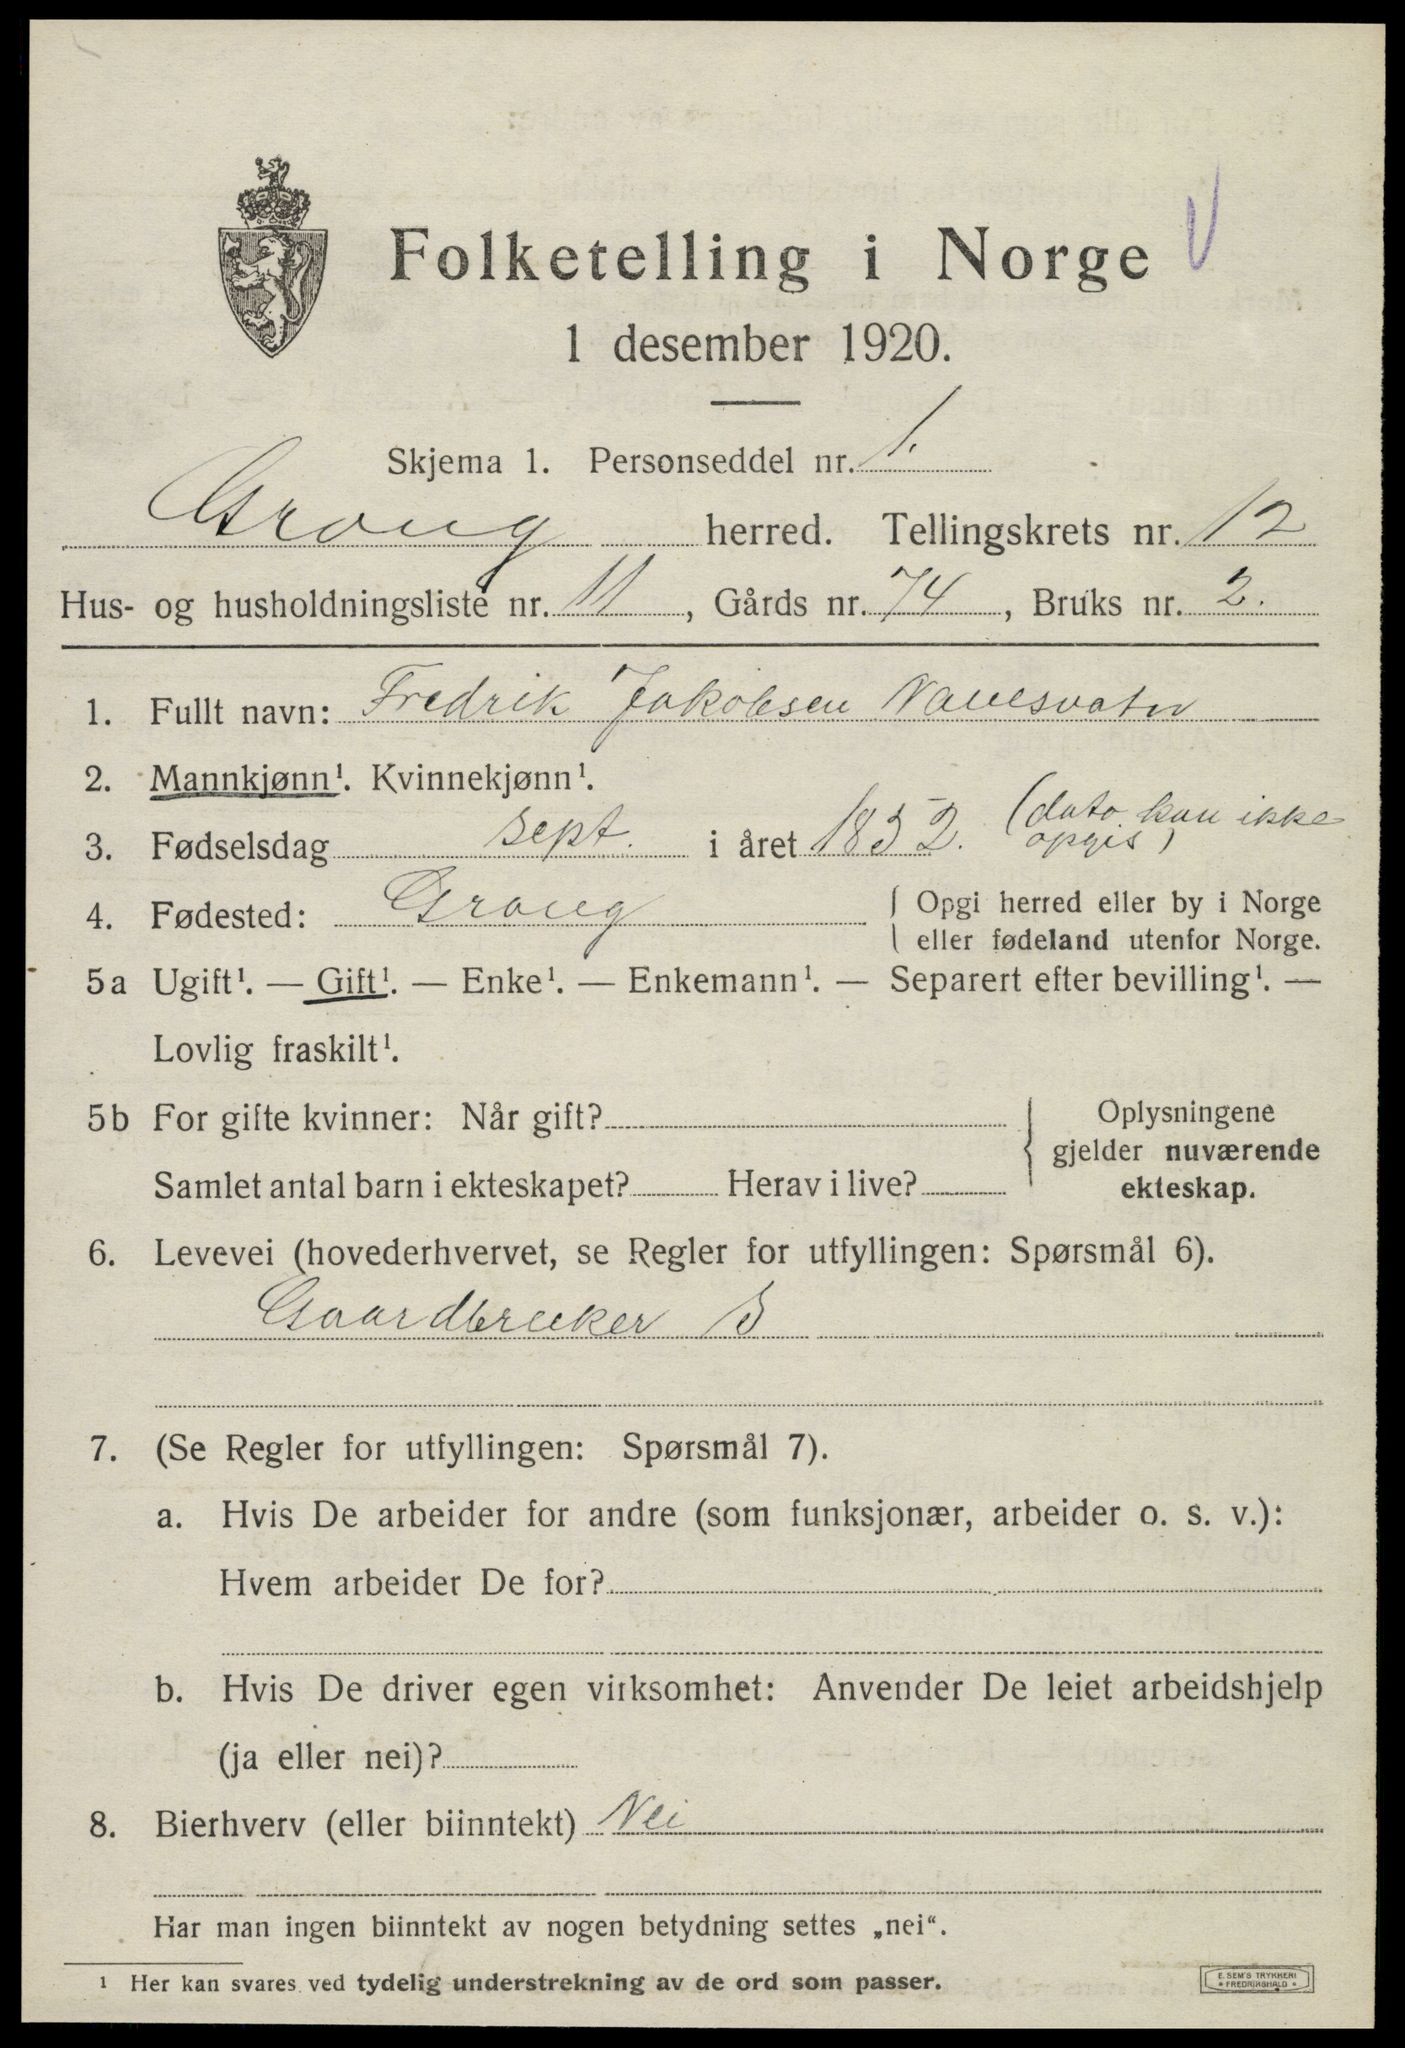 Folketelling i Norge
1 desember 1920.
Skjema 1. Personseddel nr. 1.
Grong herred. Tellingskrets nr. 12
Hus- og husholdningsliste nr. 11, Gårds nr. 74, Bruks nr. 2.
1. Fullt navn: Fredrik Jakobsen
2. Mannkjønn¹. Kvinnekjønn¹.
3. Fødselsdag sept. i året 1852. (dato kan ikke
opgis)
4. Fødested: Grong { Opgi herred eller by i Norge
eller fødeland utenfor Norge.
5a Ugift¹. — Gift¹. — Enke¹. — Enkemann¹. — Separert efter bevilling¹. —
Lovlig fraskilt¹.
5b For gifte kvinner: Når gift? { Oplysningene
gjelder nuværende
Samlet antal barn i ekteskapet? Herav i live? ekteskap.
6. Levevei (hovederhvervet, se Regler for utfyllingen: Spørsmål 6).
Gaardbruker S
7. (Se Regler for utfyllingen: Spørsmål 7).
a. Hvis De arbeider for andre (som funksjonær, arbeider o. s. v.):
Hvem arbeider De for?
b. Hvis De driver egen virksomhet: Anvender De leiet arbeidshjelp
(ja eller nei)?
8. Bierhverv (eller biinntekt) Nei
Har man ingen biinntekt av nogen betydning settes „nei“.
¹ Her kan svares ved tydelig understrekning av de ord som passer.
E. SEM'S TRYKKERI
• FREDRIKSHALD •